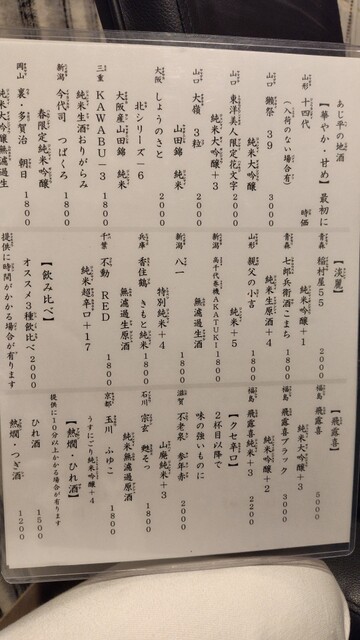 あじ平の地酒
【華やか・甘め】最初に
山形 十四代 時価
(入荷のない場合有)
山口 獺祭 39
純米大吟醸 3000
山口 東洋美人限定花文字
純米大吟醸+3 2000
山口 大嶺 3粒
山田錦 純米 2000
大阪 しょうのさと
北シリーズ-6
大阪産山田錦 純米 2000
三重 KAWABU-3
純米生酒おりがらみ 1800
新潟 今代司 つばくろ
春限定純米吟醸 1800
岡山 裏・多賀治 朝日
純米大吟醸無濾過生 1800
【淡麗】
青森 稲村屋55
純米吟醸+1 2000
青森 七郎兵衛酒こまち
純米生原酒+4 1800
山形 親父の小言
純米+5 1800
新潟 高千代巻機AKATUKI
無濾過生酒 1800
新潟 八一
特別純米+4 1800
兵庫 香住鶴 きもと純米
無濾過生原酒 1800
千葉 不動 RED
純米超辛口+17 1800
【飲み比べ】
オススメ3種飲比べ 2000
提供に時間がかかる場合が有ります
【飛露喜】
福島 飛露喜
純米大吟醸+3 5000
福島 飛露喜ブラック
純米吟醸+2 3000
福島 飛露喜純米+3 2200
【クセ辛口】
2杯目以降で
味の強いものに
滋賀 不老泉 参年赤
山廃純米+3 2000
石川 宗玄 甦そっ
純米無濾過原酒 1800
京都 玉川 ふゆこ
うすにごり純米吟醸+4 1800
【熱燗・ひれ酒】
提供に10分以上かかる場合が有ります
ひれ酒 1500
熱燗・つぎ酒 1200